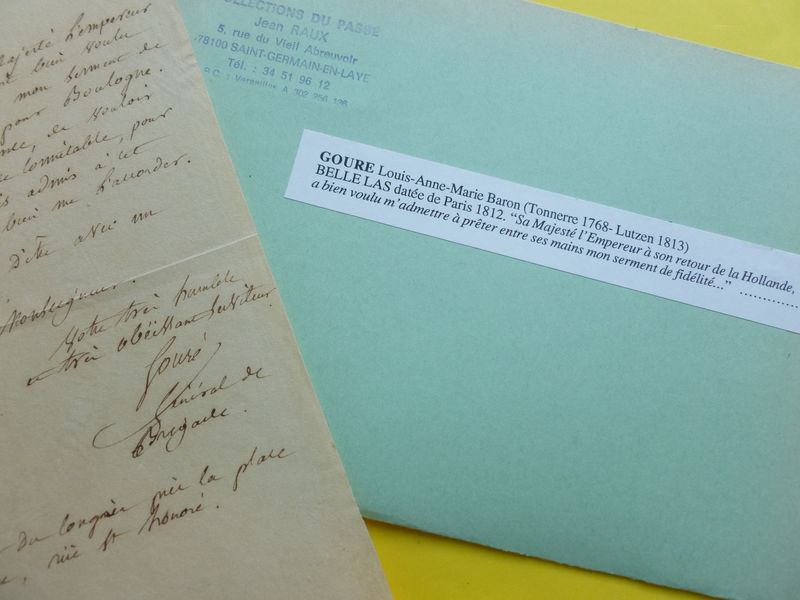 ajesté l'empereur
bien voulu
mon serment de
pour Boulogne.
de vouloir
Connétable, pour
admis à cet
bien me l'accorder.
D'être avec un
Monseigneur.
Votre très humble
et très obéissant serviteur
Gouré
Général de
Brigade.
du Congrès près la place
rue St honoré.
LLECTIONS DU PASSÉ
Jean RAUX
5, rue du Vieil Abreuvoir
78100 SAINT-GERMAIN-EN-LAYE
Tél. : 34 51 96 12
R.C. : Versailles A 302 256 136
GOURE Louis-Anne-Marie Baron (Tonnerre 1768- Lutzen 1813)
BELLE LAS datée de Paris 1812. “Sa Majesté l’Empereur à son retour de la Hollande,
a bien voulu m’admettre à prêter entre ses mains mon serment de fidélité...” .............